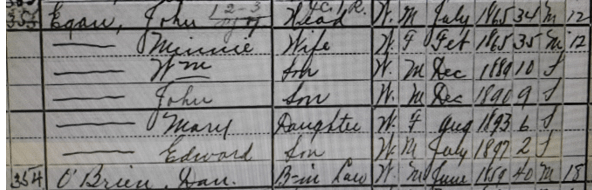 353 Egan, John Head W. M July 1865 34 M 12
— Minnie Wife W. F Feb 1865 35 M 12
— Wm Son W. M Dec 1889 10 S
— John Son W. M Dec 1890 9 S
— Mary Daughter W. F Aug 1893 6 S
— Edward Son W. M July 1897 2 S
354 O'Brien, Dan. B-in Law W. M June 1859 40 M 15